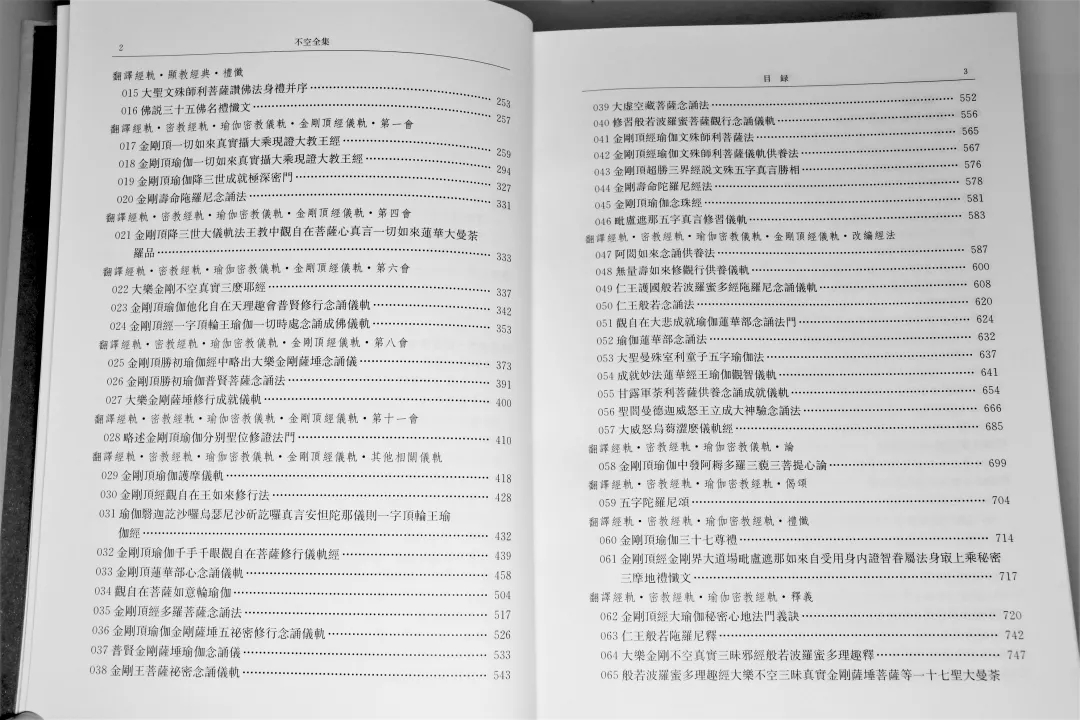 2
不空全集
翻譯經軌・顯教經典・禮懺
015 大聖文殊師利菩薩讚佛法身禮并序 253
016 佛説三十五佛名禮懺文 257
翻譯經軌・密教經軌・瑜伽密教儀軌・金剛頂經儀軌・第一會
017 金剛頂一切如來真實攝大乘現證大教王經 259
018 金剛頂瑜伽一切如來真實攝大乘現證大教王經 294
019 金剛頂瑜伽降三世成就極深密門 327
020 金剛壽命陁羅尼念誦法 331
翻譯經軌・密教經軌・瑜伽密教儀軌・金剛頂經儀軌・第四會
021 金剛頂降三世大儀軌法王教中觀自在菩薩心真言一切如來蓮華大曼荼
羅品 333
翻譯經軌・密教經軌・瑜伽密教儀軌・金剛頂經儀軌・第六會
022 大樂金剛不空真實三麽耶經 337
023 金剛頂瑜伽他化自在天理趣會普賢修行念誦儀軌 342
024 金剛頂經一字頂輪王瑜伽一切時處念誦成佛儀軌 353
翻譯經軌・密教經軌・瑜伽密教儀軌・金剛頂經儀軌・第八會
025 金剛頂勝初瑜伽經中略出大樂金剛薩埵念誦儀 373
026 金剛頂勝初瑜伽普賢菩薩念誦法 391
027 大樂金剛薩埵修行成就儀軌 400
翻譯經軌・密教經軌・瑜伽密教儀軌・金剛頂經儀軌・第十一會
028 略述金剛頂瑜伽分别聖位修證法門 410
翻譯經軌・密教經軌・瑜伽密教儀軌・金剛頂經儀軌・其他相關儀軌
029 金剛頂瑜伽護摩儀軌 418
030 金剛頂經觀自在王如來修行法 428
031 瑜伽翳迦訖沙囉烏瑟尼沙斫訖囉真言安怛陀那儀則一字頂輪王瑜
伽經 432
032 金剛頂瑜伽千手千眼觀自在菩薩修行儀軌經 439
033 金剛頂蓮華部心念誦儀軌 458
034 觀自在菩薩如意輪瑜伽 504
035 金剛頂經多羅菩薩念誦法 517
036 金剛頂瑜伽金剛薩埵五祕密修行念誦儀軌 526
037 普賢金剛薩埵瑜伽念誦儀 533
038 金剛王菩薩祕密念誦儀軌 543
目　録
3
039 大虛空藏菩薩念誦法 552
040 修習般若波羅蜜菩薩觀行念誦儀軌 556
041 金剛頂經瑜伽文殊師利菩薩法 565
042 金剛頂經瑜伽文殊師利菩薩儀軌供養法 567
043 金剛頂超勝三界經説文殊五字真言勝相 576
044 金剛壽命陀羅尼經法 578
045 金剛頂瑜伽念珠經 581
046 毗盧遮那五字真言修習儀軌 583
翻譯經軌・密教經軌・瑜伽密教儀軌・金剛頂經儀軌・改編經法
047 阿閦如來念誦供養法 587
048 無量壽如來修觀行供養儀軌 600
049 仁王護國般若波羅蜜多經陁羅尼念誦儀軌 608
050 仁王般若念誦法 620
051 觀自在大悲成就瑜伽蓮華部念誦法門 624
052 瑜伽蓮華部念誦法 632
053 大聖曼殊室利童子五字瑜伽法 637
054 成就妙法蓮華經王瑜伽觀智儀軌 641
055 甘露軍荼利菩薩供養念誦成就儀軌 654
056 聖閻曼德迦威怒王立成大神驗念誦法 666
057 大威怒烏蒭澀麽儀軌經 685
翻譯經軌・密教經軌・瑜伽密教儀軌・論
058 金剛頂瑜伽中發阿耨多羅三藐三菩提心論 699
翻譯經軌・密教經軌・瑜伽密教儀軌・偈頌
059 五字陀羅尼頌 704
翻譯經軌・密教經軌・瑜伽密教儀軌・禮懺
060 金剛頂瑜伽三十七尊禮 714
061 金剛頂經金剛界大道場毗盧遮那如來自受用身内證智眷屬法身㝡上乘秘密
三摩地禮懺文 717
翻譯經軌・密教經軌・瑜伽密教儀軌・釋義
062 金剛頂經大瑜伽秘密心地法門義訣 720
063 仁王般若陁羅尼釋 742
064 大樂金剛不空真實三昧邪經般若波羅蜜多理趣釋 747
065 般若波羅蜜多理趣經大樂不空三昧真實金剛薩埵菩薩等一十七聖大曼荼